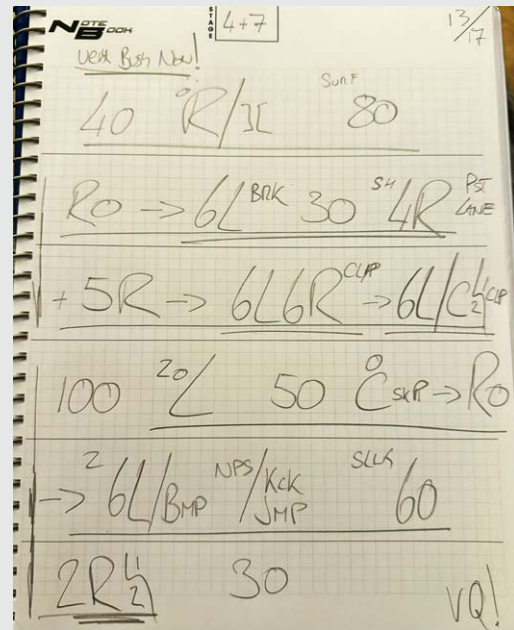 NOTE BOOK STAGE 4+7 13/17
Very Busy Now!
40 R/ SURF 80
RO → 6L BRK 30 SH 4R PST LANE
+ 5R → 6L6R CLAP → 6L/C
100 20/L 50 C SKR → RO
→ 2 6L/BMP NPS/KCK JMP SLCK 60
2R 30 VQ!